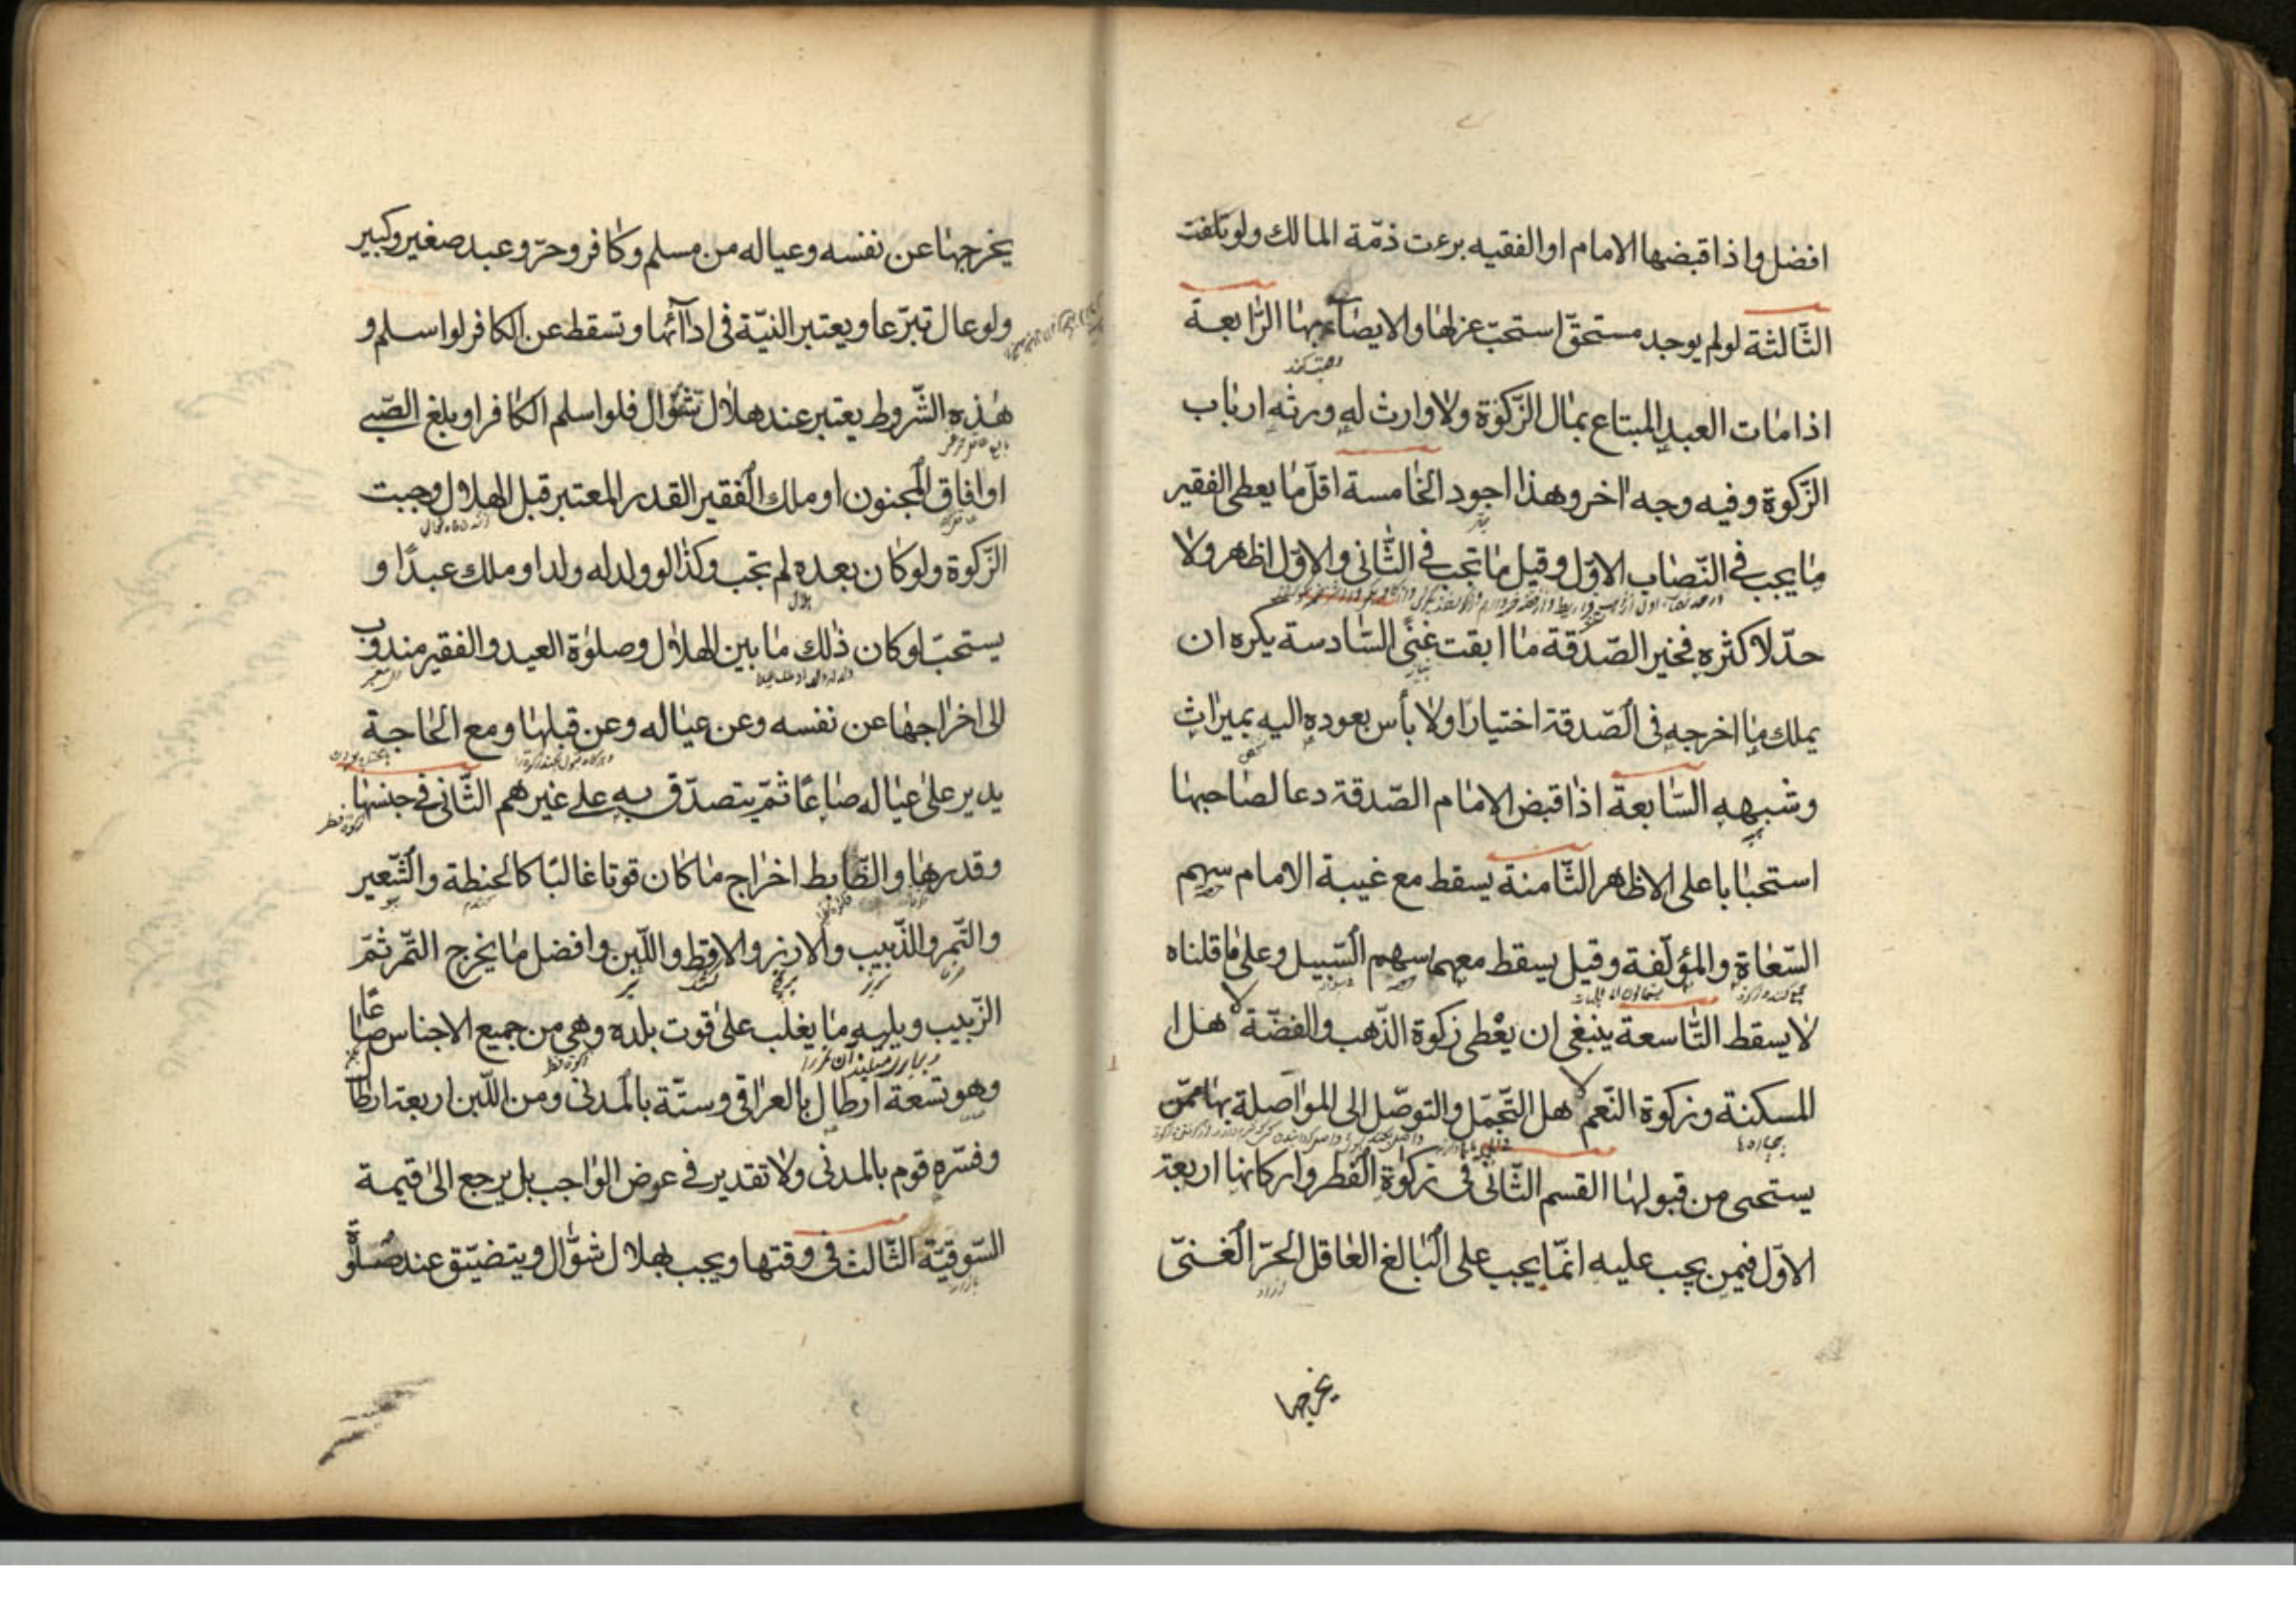 افضل واذا قبضها الامام او الفقيه برءت ذمّة المالك ولو تلفت
الثّالثة لو لم يوجد مستحقّ استحبّ عزلها والايصاء بها الرّابعة
اذا مات العبد المبتاع بمال الزّكوة ولا وارث له ورثه ارباب
الزّكوة وفيه وجه اخر وهذا اجود الخامسة اقلّ ما يعطى الفقير
ما يجب في النّصاب الاوّل وقيل ما تجب في الثّانى والاوّل اظهر ولا
حدّ لاكثره فخير الصّدقة ما ابقت غنًى السّادسة يكره ان
يملك ما اخرجه فى الصّدقة اختيارا ولا بأس بعوده اليه بميراث
وشبهه السّابعة اذا قبض الامام الصّدقة دعا لصاحبها
استحبابا على الاظهر الثّامنة يسقط مع غيبة الامام سهم
السّعاة والمؤلّفة وقيل يسقط معهما سهم السّبيل وعلى ما قلناه
لا يسقط التّاسعة ينبغى ان يعْطى زكوة الذّهب والفضّة لا هل ا
المسكنة وزكوة النّعم لا هل التّجمّل والتوصّل الى المواصلة بها ممّن
يستحى من قبولها القسم الثّانى فى زكوة الفطر واركانها اربعة
الاوّل فيمن يجب عليه انّما يجب على البالغ العاقل الحرّ الغنىّ
يخرجها
يخرجها عن نفسه وعياله من مسلم وكافر وحرّ وعبد صغير وكبير
ولو عال تبرّعا ويعتبر النيّة فى ادآئها وتسقط عن الكافر لو اسلم و
هذه الشّروط يعتبر عند هلال شوّال فلو اسلم الكافر او بلغ الصّبى
او افاق المجنون او ملك الفقير القدر المعتبر قبل الهلال وجبت
الزّكوة ولو كان بعده لم تجب وكذا لو ولد له ولد او ملك عبدًا و
يستحبّ لو كان ذلك ما بين الهلال وصلوة العيد والفقير مندوب
الى اخراجها عن نفسه وعن عياله وعن قبلها ومع الحاجة
يدير على عياله صاعًا ثمّ يتصدّق به على غيرهم الثّانى فى جنسها
وقدرها والظّابط اخراج ما كان قوتا غالبًا كالحنطة والشّعير
والتّمر والذّبيب والارز والاقط واللّبن وافضل ما يخرج التّمر ثمّ
الزّبيب ويليه ما يغلب على قوت بلده وهى من جميع الاجناس صاعا
وهو تسعة ارطال بالعراقى وستّة بالمدنى ومن اللّبن اربعة ارطا
وفسّره قوم بالمدنى ولا تقدير فى عوض الواجب بل يرجع الى قيمة
السّوقيّة الثّالث فى وقتها ويجب بهلال شوّال ويتضيّق عند صلوة